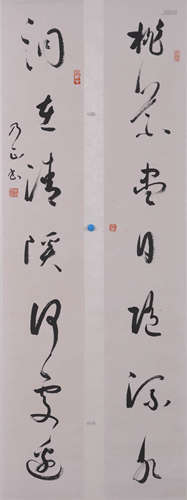 桃花尽日随流水
洞在清溪何处边
乃正书